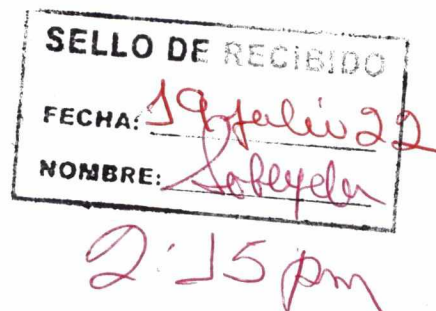 SELLO DE RECIBIDO
FECHA: 19 julio 22
NOMBRE:
2:15 pm